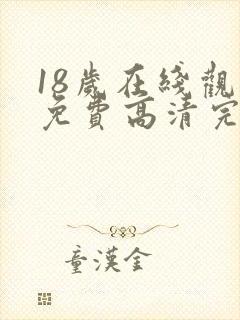 18歲在綫觀
免費高清完
童漢全